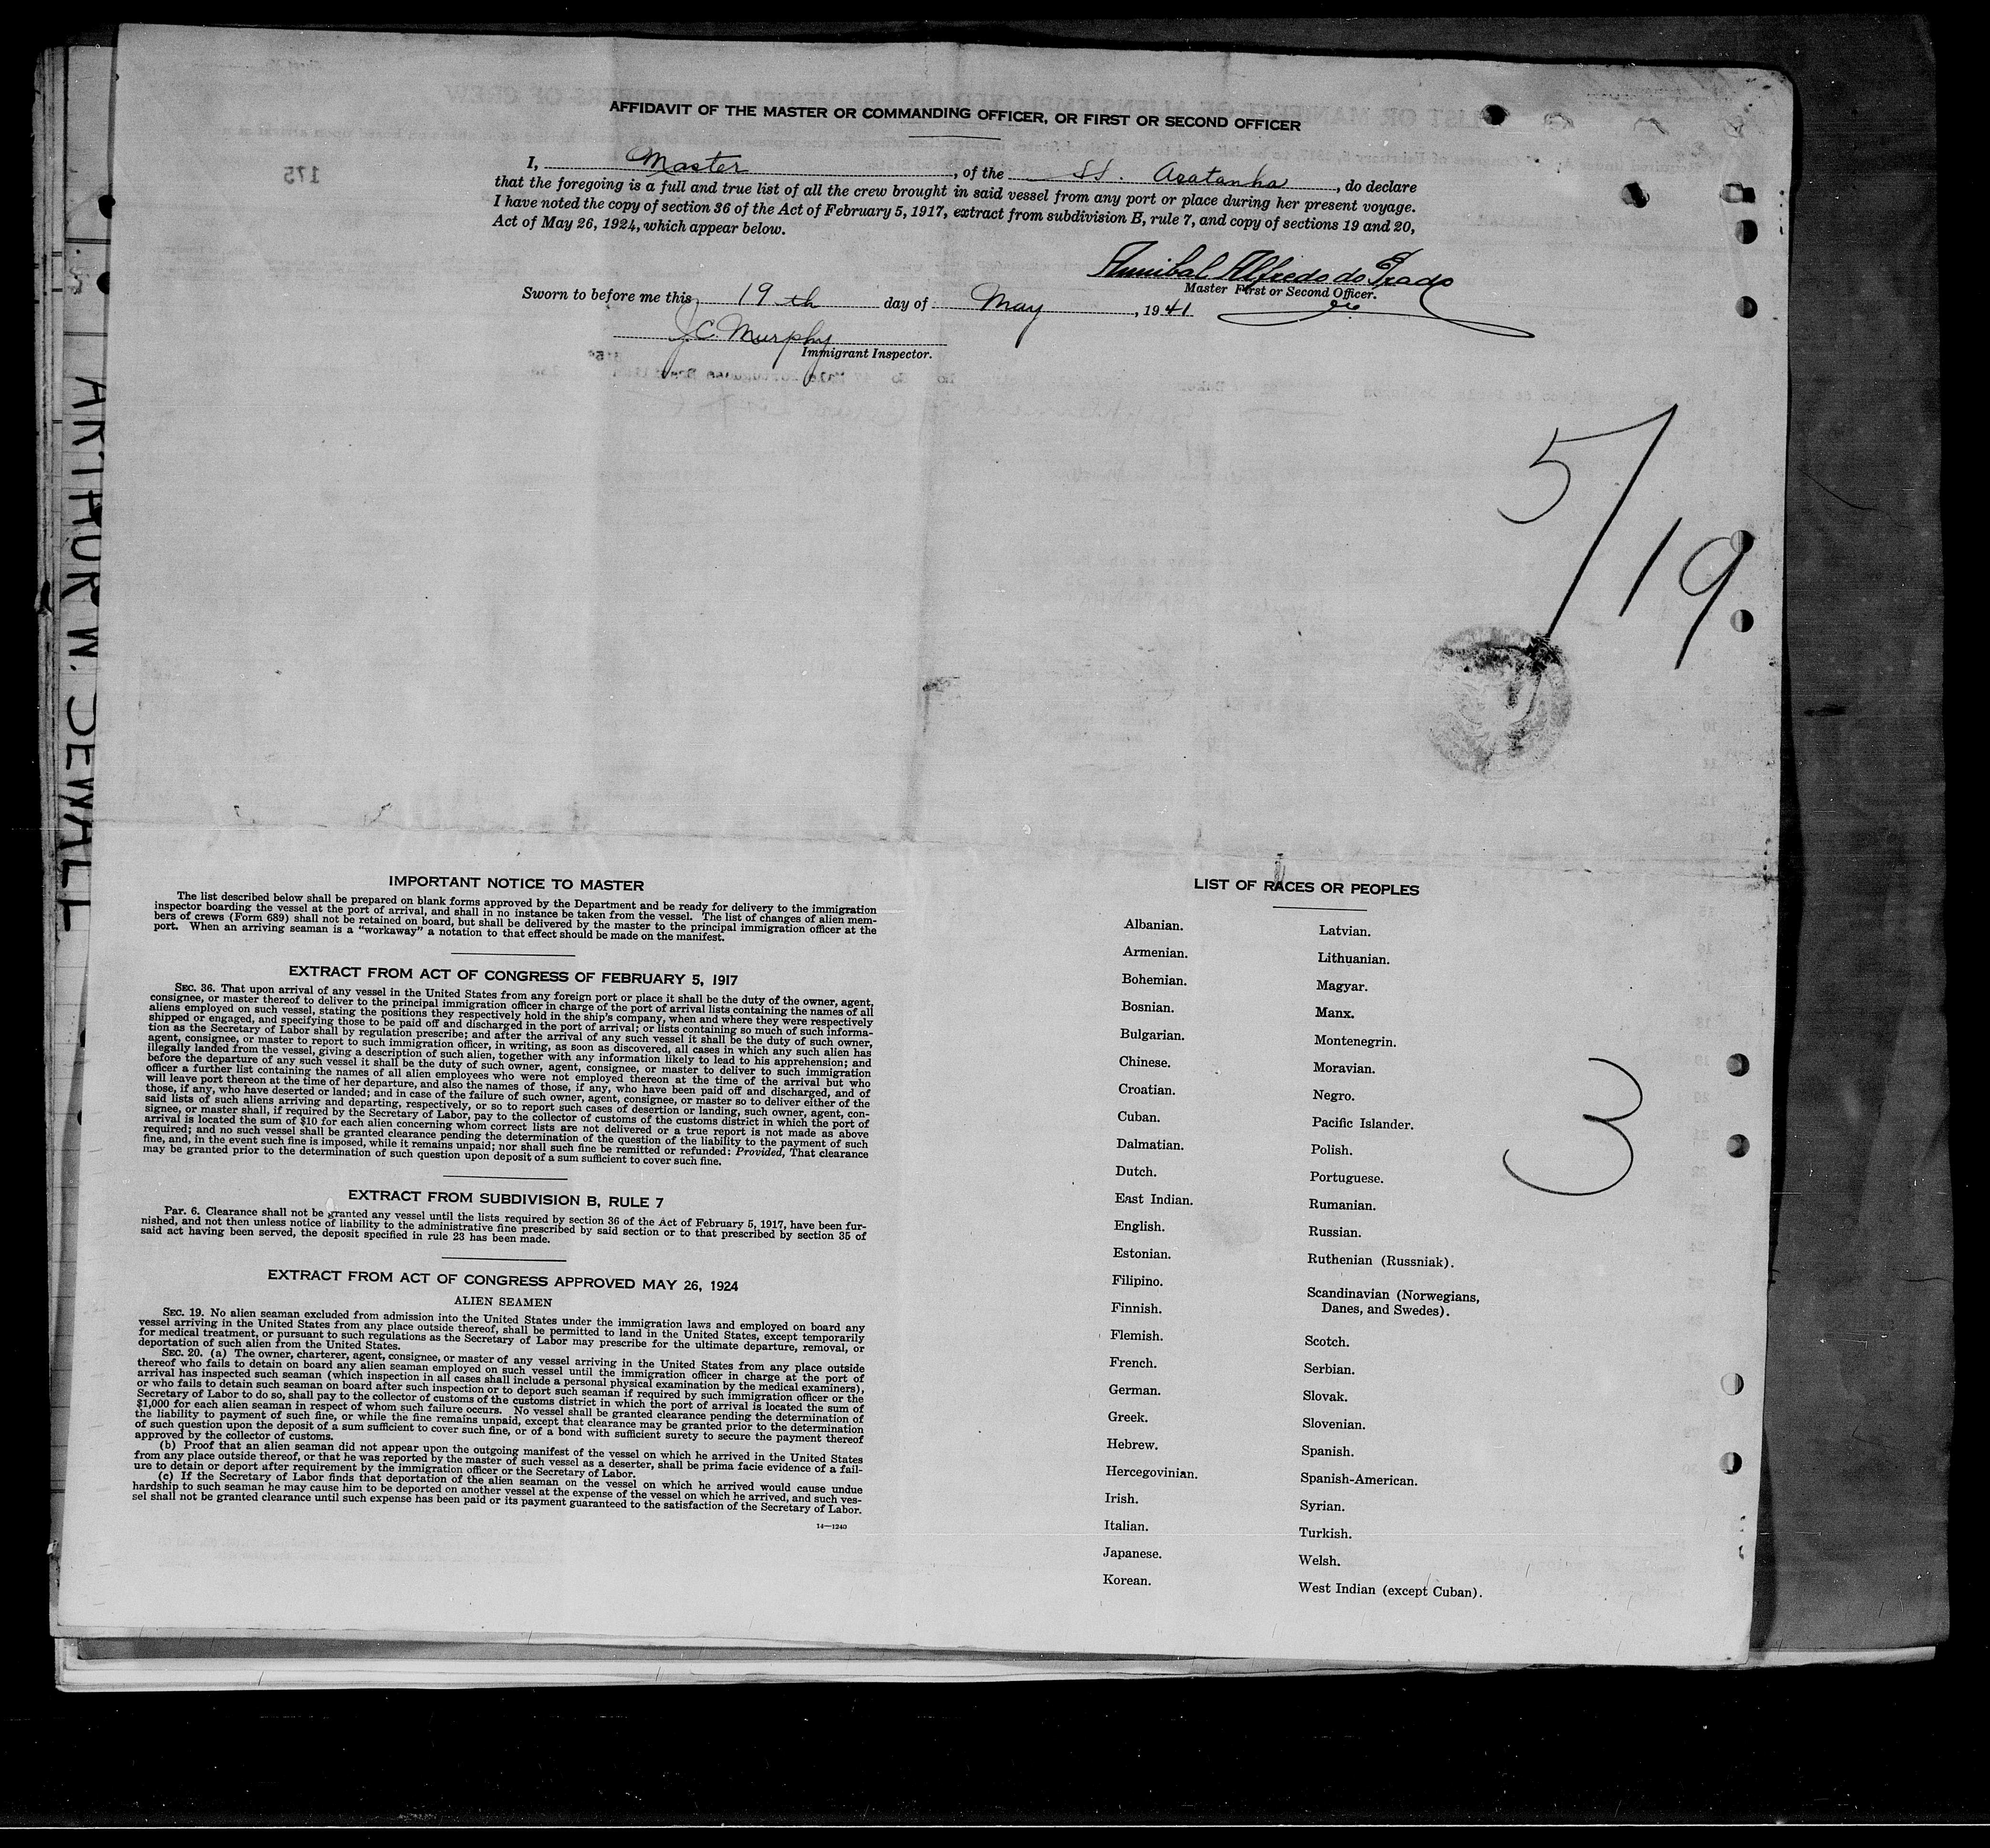 AFFIDAVIT OF THE MASTER OR COMMANDING OFFICER, OR FIRST OR SECOND OFFICER
I, Master, of the SS. Aratanha, do declare
that the foregoing is a full and true list of all the crew brought in said vessel from any port or place during her present voyage.
I have noted the copy of section 36 of the Act of February 5, 1917, extract from subdivision B, rule 7, and copy of sections 19 and 20,
Act of May 26, 1924, which appear below.
Annibal Alfredo do Prado
Master First or Second Officer.
Sworn to before me this 19th day of May, 1941
J.C. Murphy
Immigrant Inspector.
175
5/19
ARTHUR W. SEWALL
IMPORTANT NOTICE TO MASTER
The list described below shall be prepared on blank forms approved by the Department and be ready for delivery to the immigration
inspector boarding the vessel at the port of arrival, and shall in no instance be taken from the vessel. The list of changes of alien mem-
bers of crews (Form 689) shall not be retained on board, but shall be delivered by the master to the principal immigration officer at the
port. When an arriving seaman is a "workaway" a notation to that effect should be made on the manifest.
EXTRACT FROM ACT OF CONGRESS OF FEBRUARY 5, 1917
SEC. 36. That upon arrival of any vessel in the United States from any foreign port or place it shall be the duty of the owner, agent,
consignee, or master thereof to deliver to the principal immigration officer in charge of the port of arrival lists containing the names of all
aliens employed on such vessel, stating the positions they respectively hold in the ship's company, when and where they were respectively
shipped or engaged, and specifying those to be paid off and discharged in the port of arrival; or lists containing so much of such informa-
tion as the Secretary of Labor shall by regulation prescribe; and after the arrival of any such vessel it shall be the duty of such owner,
agent, consignee, or master to report to such immigration officer, in writing, as soon as discovered, all cases in which any such alien has
illegally landed from the vessel, giving a description of such alien, together with any information likely to lead to his apprehension; and
before the departure of any such vessel it shall be the duty of such owner, agent, consignee, or master to deliver to such immigration
officer a further list containing the names of all alien employees who were not employed thereon at the time of the arrival but who
will leave port thereon at the time of her departure, and also the names of those, if any, who have been paid off and discharged, and of
those, if any, who have deserted or landed; and in case of the failure of such owner, agent, consignee, or master so to deliver either of the
said lists of such aliens arriving and departing, respectively, or so to report such cases of desertion or landing, such owner, agent, con-
signee, or master shall, if required by the Secretary of Labor, pay to the collector of customs of the customs district in which the port of
arrival is located the sum of $10 for each alien concerning whom correct lists are not delivered or a true report is not made as above
required; and no such vessel shall be granted clearance pending the determination of the question of the liability to the payment of such
fine, and, in the event such fine is imposed, while it remains unpaid; nor shall such fine be remitted or refunded: Provided, That clearance
may be granted prior to the determination of such question upon deposit of a sum sufficient to cover such fine.
EXTRACT FROM SUBDIVISION B, RULE 7
Par. 6. Clearance shall not be granted any vessel until the lists required by section 36 of the Act of February 5, 1917, have been fur-
nished, and not then unless notice of liability to the administrative fine prescribed by said section or to that prescribed by section 35 of
said act having been served, the deposit specified in rule 23 has been made.
EXTRACT FROM ACT OF CONGRESS APPROVED MAY 26, 1924
ALIEN SEAMEN
SEC. 19. No alien seaman excluded from admission into the United States under the immigration laws and employed on board any
vessel arriving in the United States from any place outside thereof, shall be permitted to land in the United States, except temporarily
for medical treatment, or pursuant to such regulations as the Secretary of Labor may prescribe for the ultimate departure, removal, or
deportation of such alien from the United States.
SEC. 20. (a) The owner, charterer, agent, consignee, or master of any vessel arriving in the United States from any place outside
thereof who fails to detain on board any alien seaman employed on such vessel until the immigration officer in charge at the port of
arrival has inspected such seaman (which inspection in all cases shall include a personal physical examination by the medical examiners),
or who fails to detain such seaman on board after such inspection or to deport such seaman if required by such immigration officer or the
Secretary of Labor to do so, shall pay to the collector of customs of the customs district in which the port of arrival is located the sum of
$1,000 for each alien seaman in respect of whom such failure occurs. No vessel shall be granted clearance pending the determination of
the liability to payment of such fine, or while the fine remains unpaid, except that clearance may be granted prior to the determination
of such question upon the deposit of a sum sufficient to cover such fine, or of a bond with sufficient surety to secure the payment thereof
approved by the collector of customs.
(b) Proof that an alien seaman did not appear upon the outgoing manifest of the vessel on which he arrived in the United States
from any place outside thereof, or that he was reported by the master of such vessel as a deserter, shall be prima facie evidence of a fail-
ure to detain or deport after requirement by the immigration officer or the Secretary of Labor.
(c) If the Secretary of Labor finds that deportation of the alien seaman on the vessel on which he arrived would cause undue
hardship to such seaman he may cause him to be deported on another vessel at the expense of the vessel on which he arrived, and such ves-
sel shall not be granted clearance until such expense has been paid or its payment guaranteed to the satisfaction of the Secretary of Labor.
14—1240
LIST OF RACES OR PEOPLES
Albanian.
Armenian.
Bohemian.
Bosnian.
Bulgarian.
Chinese.
Croatian.
Cuban.
Dalmatian.
Dutch.
East Indian.
English.
Estonian.
Filipino.
Finnish.
Flemish.
French.
German.
Greek.
Hebrew.
Hercegovinian.
Irish.
Italian.
Japanese.
Korean.
Latvian.
Lithuanian.
Magyar.
Manx.
Montenegrin.
Moravian.
Negro.
Pacific Islander.
Polish.
Portuguese.
Rumanian.
Russian.
Ruthenian (Russniak).
Scandinavian (Norwegians,
Danes, and Swedes).
Scotch.
Serbian.
Slovak.
Slovenian.
Spanish.
Spanish-American.
Syrian.
Turkish.
Welsh.
West Indian (except Cuban).
3